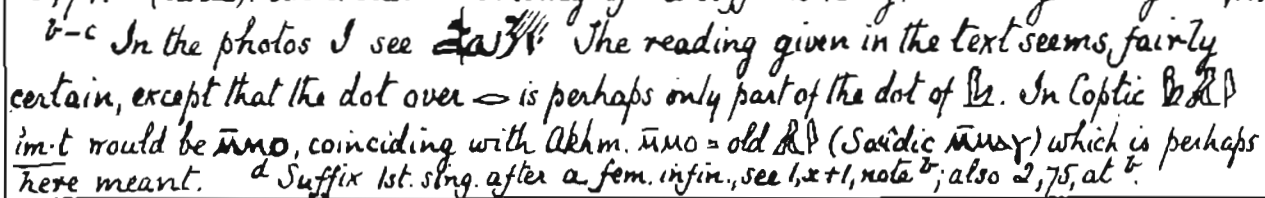 b-c In the photos I see The reading given in the text seems, fairly
certain, except that the dot over 𓂋 is perhaps only part of the dot of . In Coptic
im·t would be ⲙ̄ⲙⲟ, coinciding with Akhm. ⲙ̄ⲙⲟ = old (Saïdic ⲙ̄ⲙⲁⲩ) which is perhaps
here meant. d Suffix 1st. sing. after a fem. infin., see 1, x+1, note b; also 2, 75, at b.